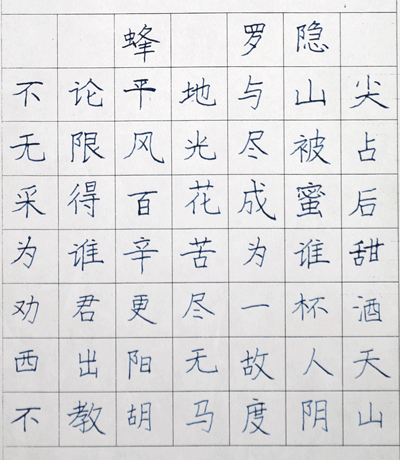 蜂 罗隐
不论平地与山尖
无限风光尽被占
采得百花成蜜后
为谁辛苦为谁甜
劝君更尽一杯酒
西出阳无故人天
不教胡马度阴山